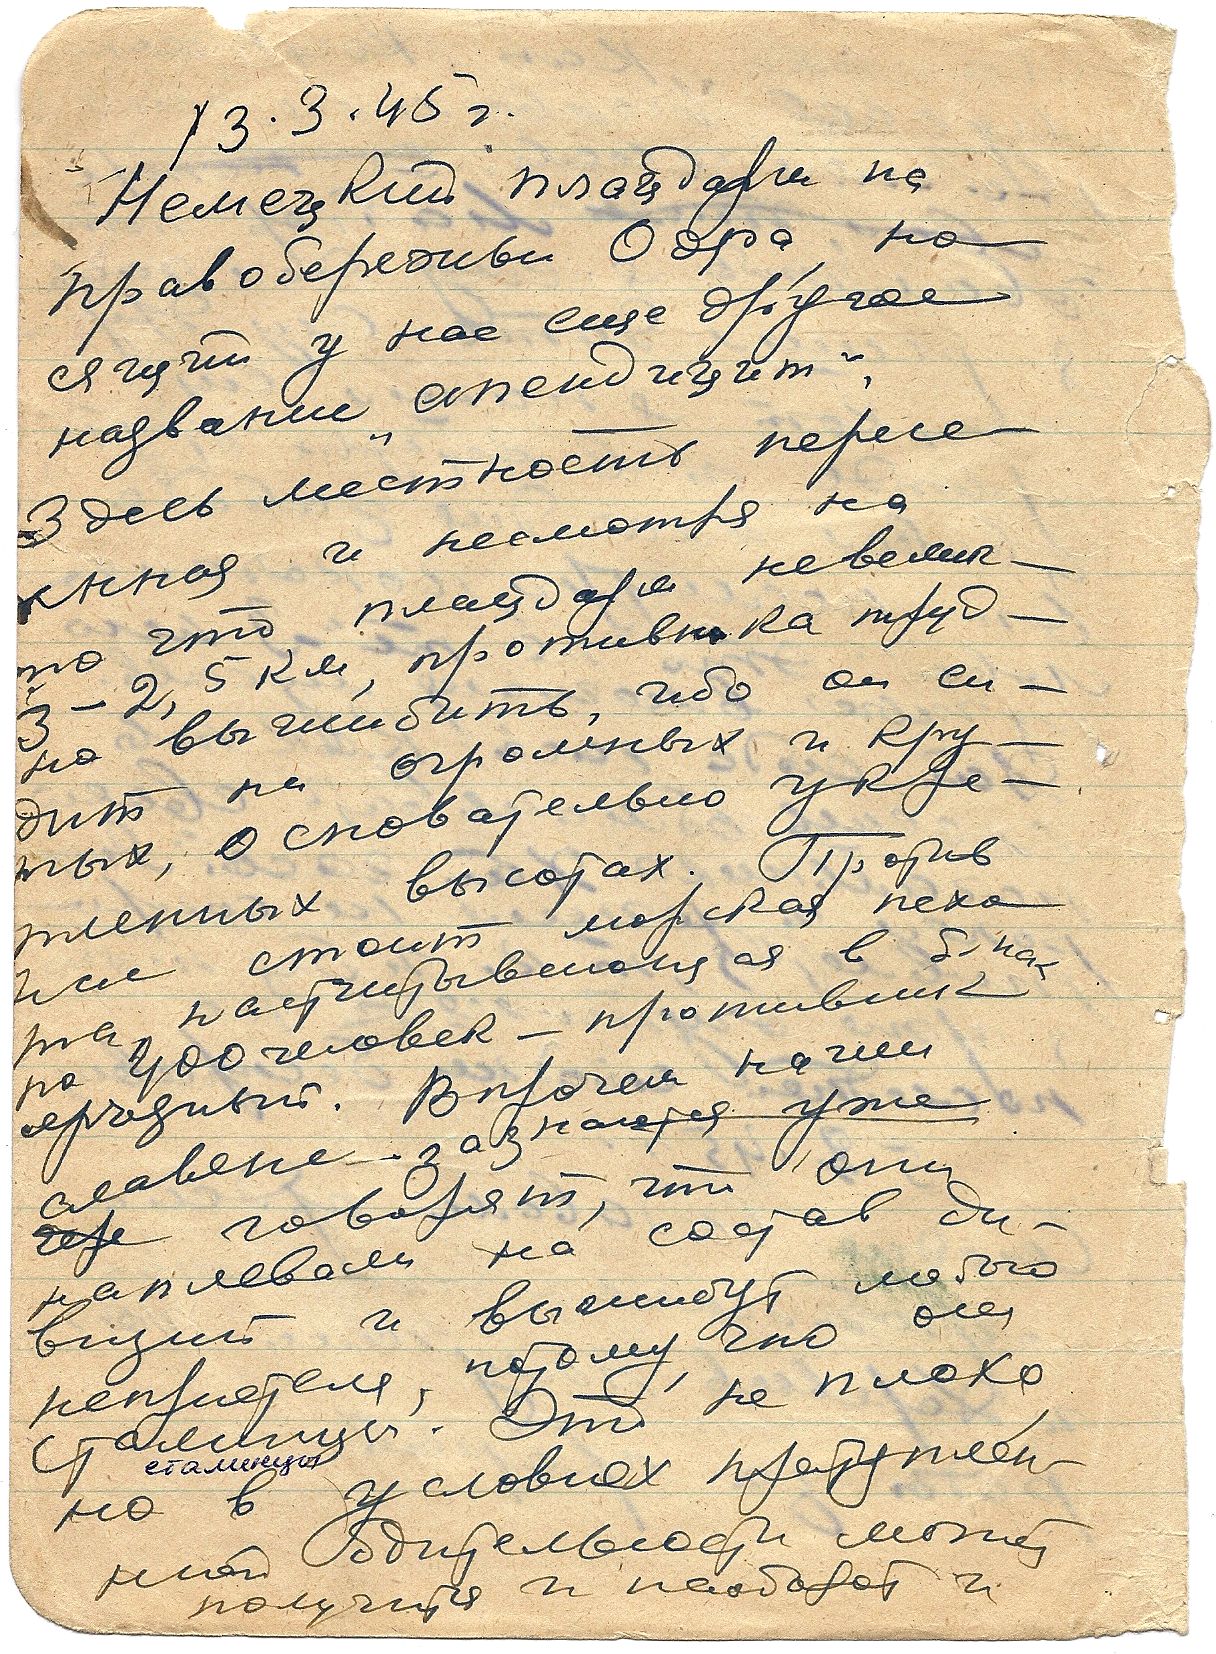 13.3.45 г.
Немецкий плацдарм на
правобережьи Одра, но
сящий у нас еще другое
название „апендицит".
Здесь местность пересе-
кнная и несмотря на
то что плацдарм невелик -
3 - 2,5 км, противника труд-
но вышибить, ибо он си-
дит на огромных и кру-
тых, основательно укре-
пленных высотах. Против
нас стоит морская пехо
та, насчитывающая в б-нах
по 400 человек - противник
серьезный. Впрочем наши
славяне зазнаются уже
говорят, что они
наплевали на состав ди-
визий и вышибут любого
неприятеля, потому, что они
сталинцы. Это не плохо,
сталинцы
но в условиях притуплен-
ной бдительности может
получится и наоборот и